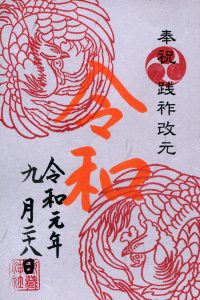 奉祝 践祚改元
令和
令和元年
九月二八日